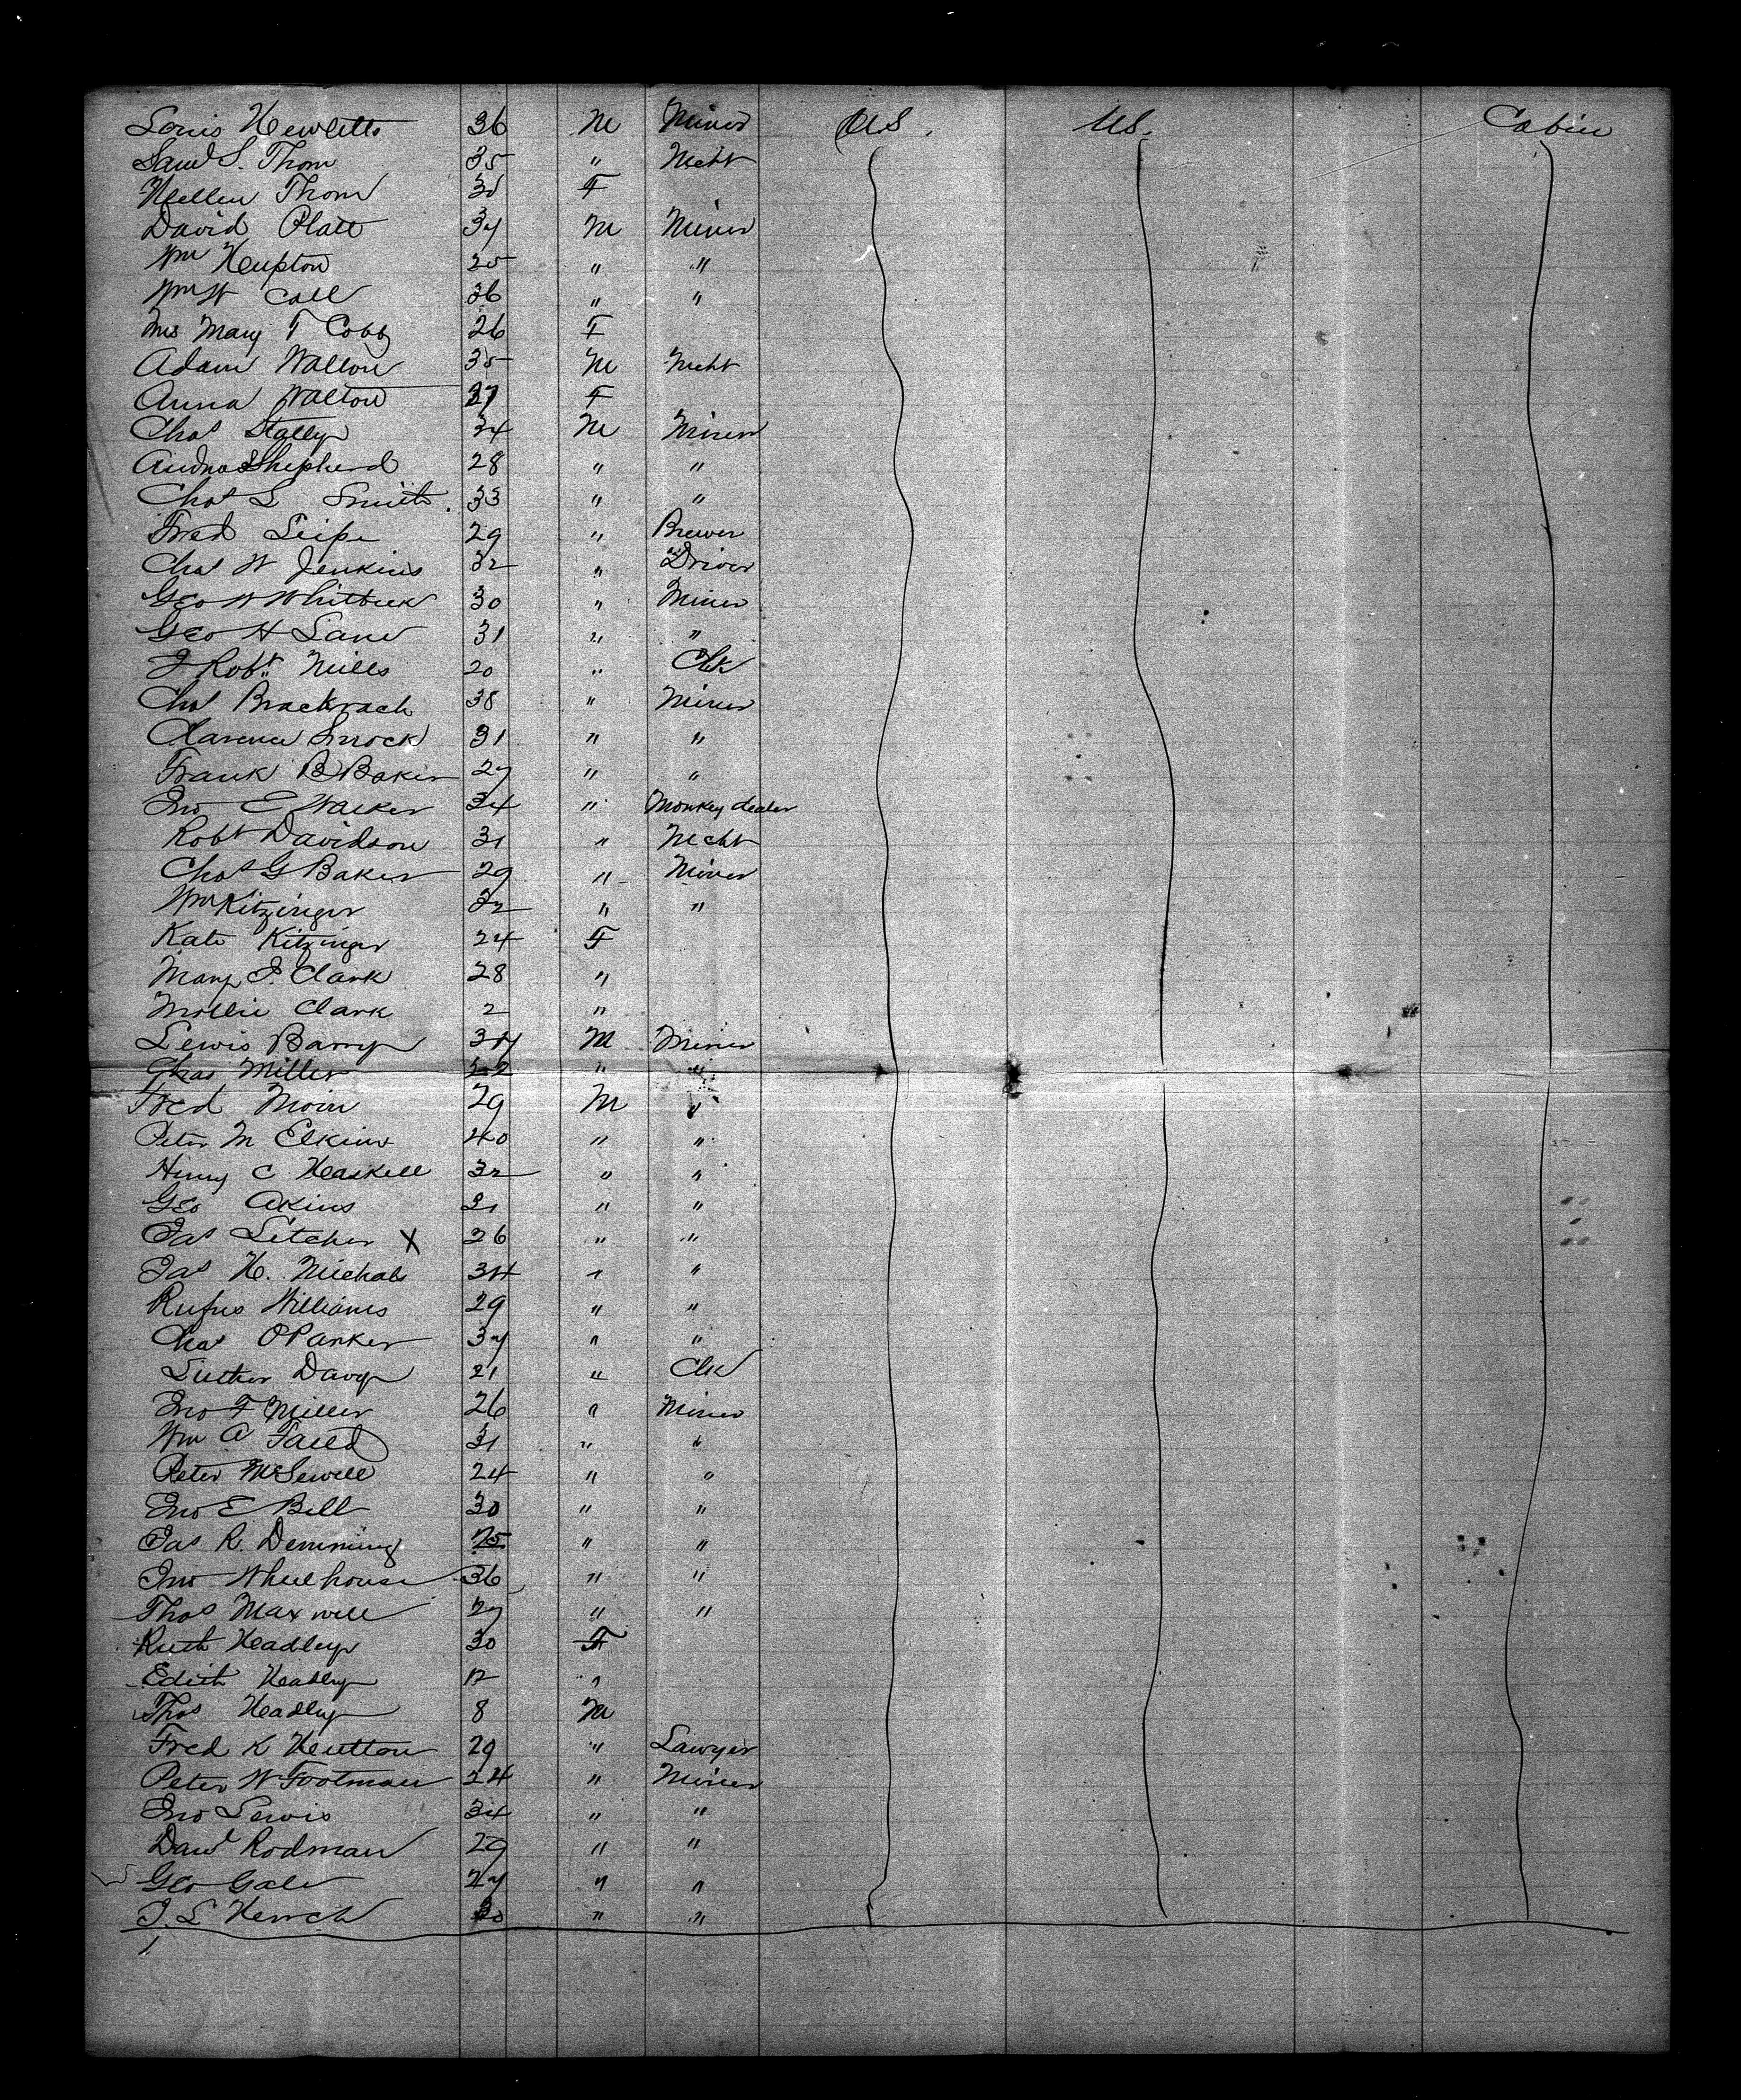 Louis Hewletts 36 M Miner U.S. U.S. Cabin
Saml S. Thom 35 " Mcht
Hellen Thom 30 F
David Platt 34 M Miner
Wm Hupton 25 " "
Wm W Call 36 " "
Mrs Mary T Cobb 26 F
Adam Walton 35 M Mcht
Anna Walton 27 F
Chas Stally 34 M Miner
Andw Shepherd 28 " "
Chas L Smith 33 " "
Fred Leipe 29 " Brewer
Chas W Jenkins 32 " Driver
Geo W Whitbeck 30 " Miner
Geo H Lane 31 " "
J Robt Mills 20 " Clk
Chas Brackrach 38 " Miner
Clarence Smock 31 " "
Frank B Baker 27 " "
Jno E Walker 34 " Monkey dealer
Robt Davidson 31 " Mcht
Chas G Baker 29 " Miner
Wm Kitzinger 32 " "
Kate Kitzinger 24 F
Mary J. Clark 28 "
Mollie Clark 2 "
Lewis Barry 34 M Miner
Chas Miller 22 " "
Fred Moin 29 M "
Peter M Elkins 40 " "
Henry C Haskell 32 " "
Geo Akins 21 " "
Jas Letcher X 26 " "
Jas H. Michals 34 " "
Rufus Williams 29 " "
Chas O Parker 37 " "
Luther Davy 21 " Clk
Jno F Miller 26 " Miner
Wm A 31 " "
Peter McSewell 24 " "
Jno E Bell 30 " "
Jas R. Demming 25 " "
Jno Wheelhouse 36 " "
Thos Maxwell 27 " "
Ruth Headley 30 F
Edith Headley 12 "
Thos Headley 8 M
Fred K Hutton 29 " Lawyer
Peter W Footman 24 " Miner
Jno Lewis 34 " "
Davd Rodman 29 " "
Geo Gale 27 " "
J. L 30 " "